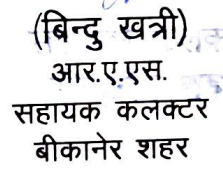 (बिन्दु खत्री)
आर.ए.एस.
सहायक कलक्टर
बीकानेर शहर